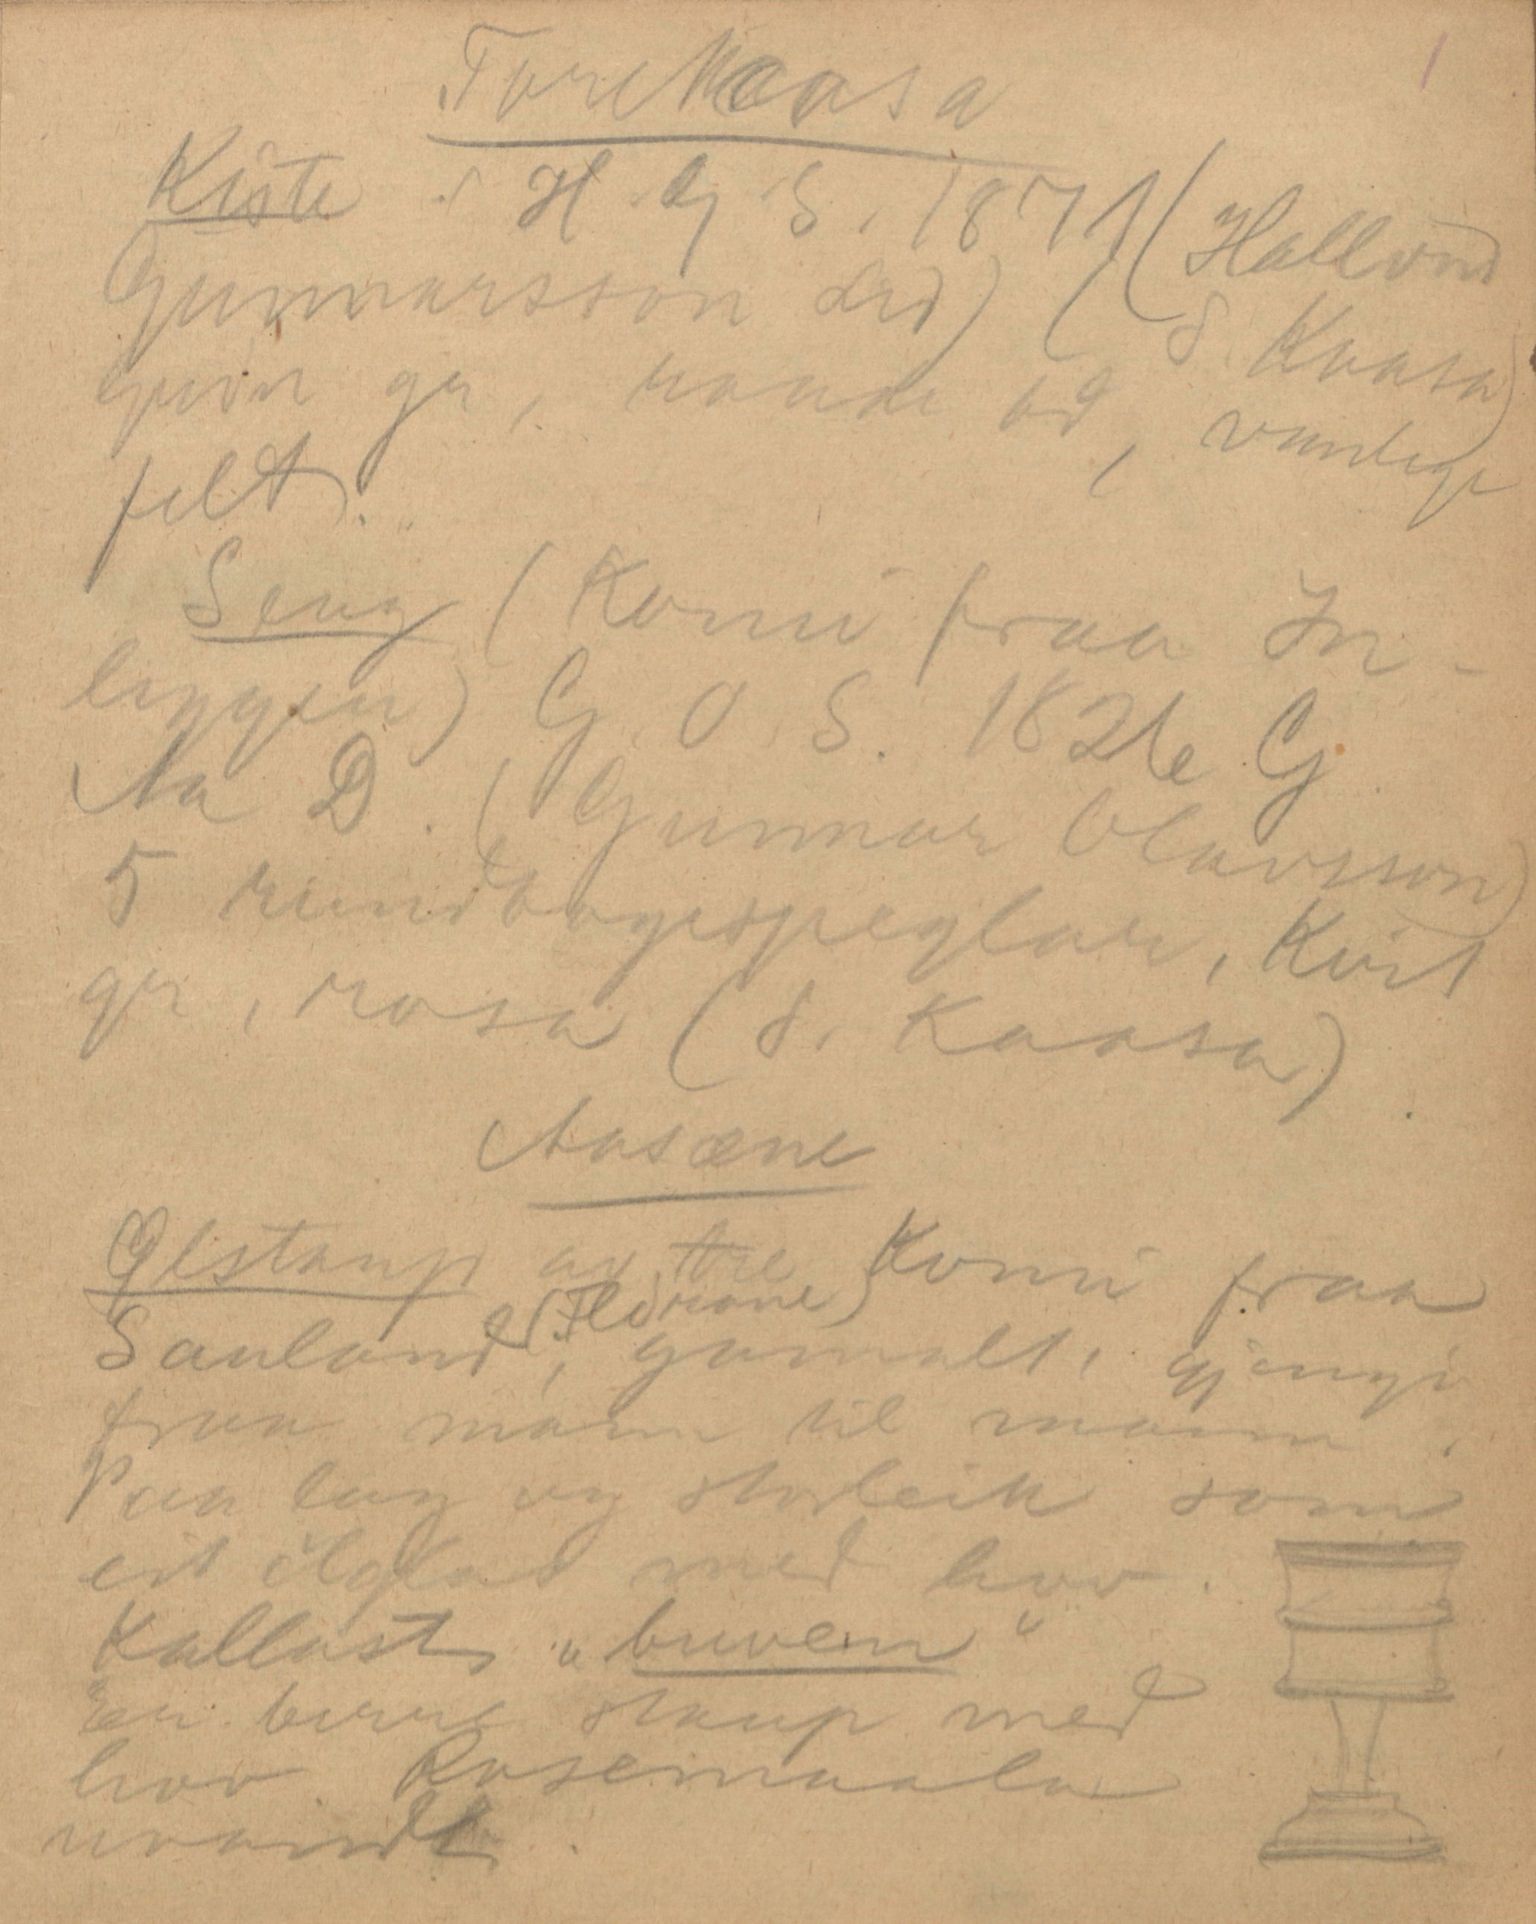 Tore Kaasa
1
Kiste : H. G. S. 1871 (Hallvord
Gunnarsson Lid) ( S. Kaasa)
grön gr, raude od, vanlege
felt).
Seng (Komi fraa In-
leggen) G. O. S. 1826 G
Aa D. (Gunnar Olavsson)
5 rundbogespeglar, Kvit
gr, rosa (S. Kaasa)
Aasæne
Ølstaup av tre Komi fraa
(Flörane)
Sauland, gamalt, gjengi
fraa mann til mann.
Paa lag og storleik som
eit ölglas med lovv.
Kallast „buven“
Er berre staup med
lovv. Rosemaala
uvandt.